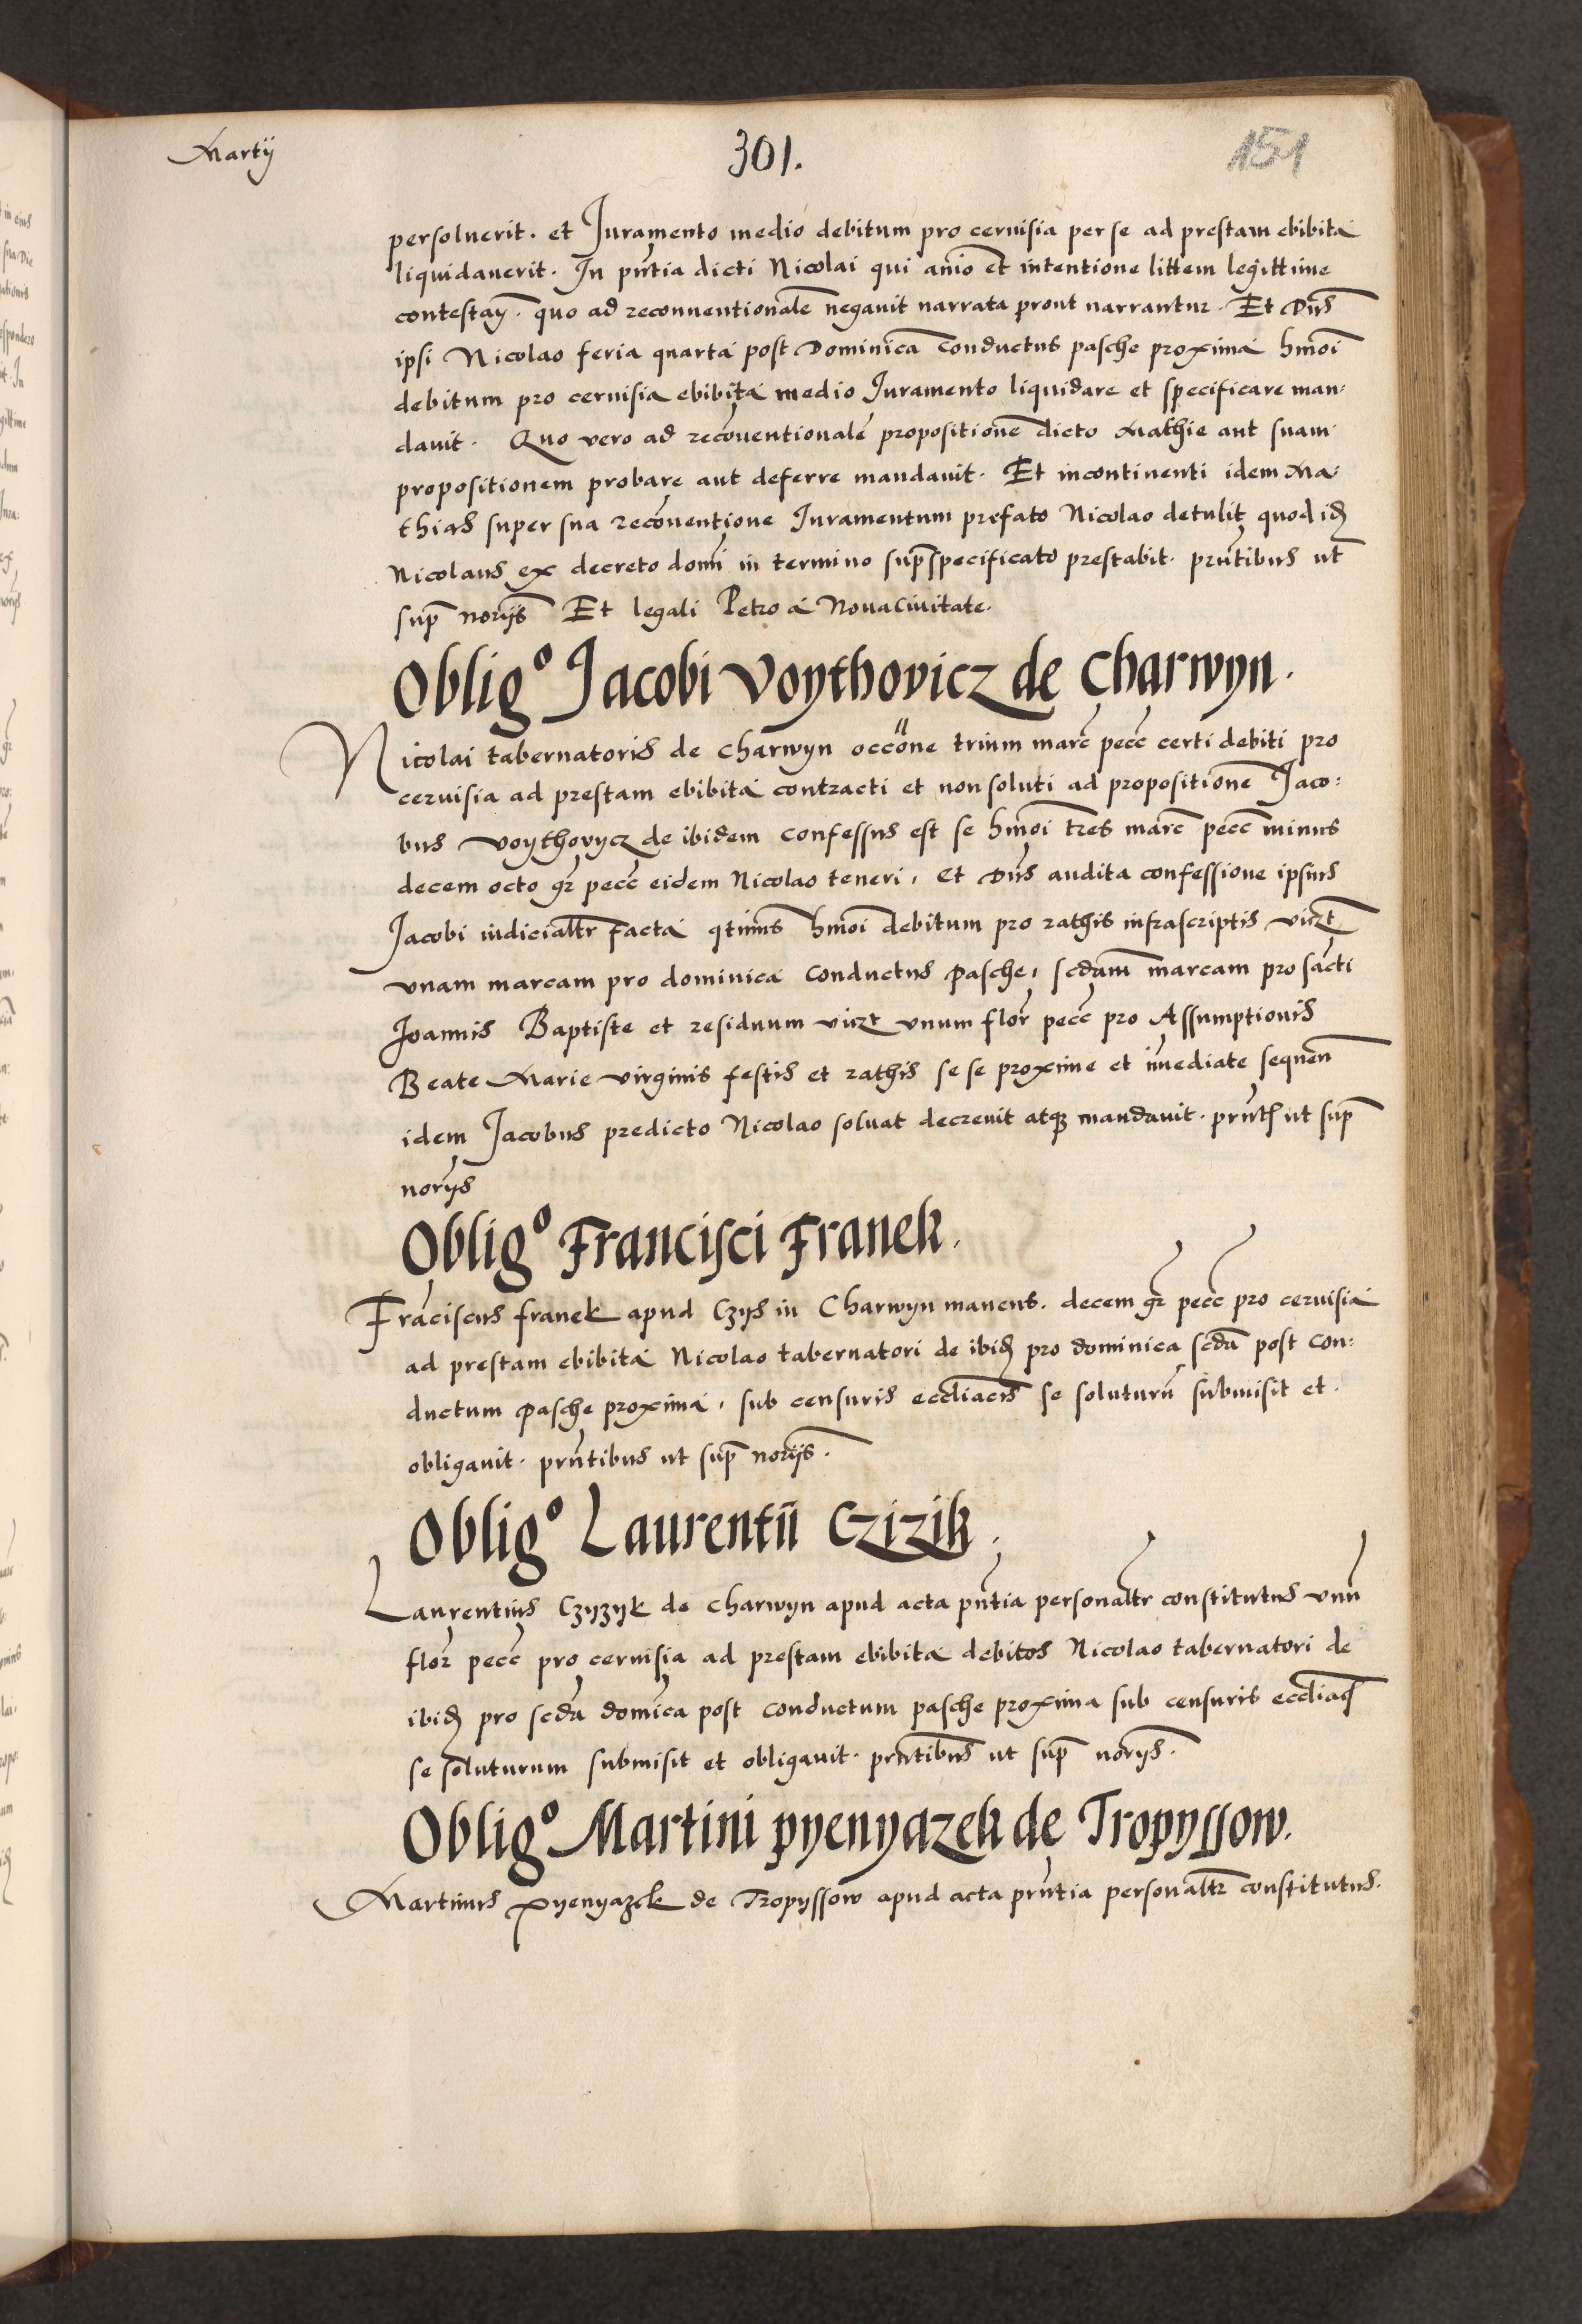 Martij
301.
151
persoluerit. et Juramento medio debitum pro ceruisia per se ad prestam ebibita
liquidauerit. In pn̄tia dicti Nicolai qui anīo et intentione littem legittime
contestan̄. quo ad reconuentionalē negauit narrata prout narrantur. Et Dn̄s
ipsi Nicolao feria quarta post Dominicā Conductus pasche proxima hmōi
debitum pro ceruisia ebibita medio Juramento liquidare et specificare man:
dauit. Quo vero ad recōuentionalē propositionē dicto Mathie aut suam
propositionem probare aut deferre mandauit. Et incontinenti idem Ma:
thias super sua recōuentione Juramentum prefato Nicolao detulit quod idē
Nicolaus ex decreto domī in termino sup̄specificato prestabit. prn̄tibus ut
sup̄ norijs Et legali Petro a Nouaciuitate.
Oblig⁰ Jacobi Voythovicz de Charwyn.
Nicolai tabernatoris de Charwyn occōne trium marc̄ pecc̄ certi debiti pro
ceruisia ad prestam ebibita contracti et non soluti ad propositionē Jaco:
bus Voythovycz de ibidem confessus est se hmōi tres marc̄ pecc̄ minus
decem octo gr̄ pecc̄ eidem Nicolao teneri, et Dn̄s audita confessione ipsius
Jacobi iudicialtr̄ facta qtinus hmōi debitum pro rathis infrascriptis vizt
vnam marcam pro dominica Conductus pasche, scdam̄ marcam pro sācti
Joannis Baptiste et residuum vizt vnum flor̄ pecc̄ pro Assumptionis
Beate Marie virginis festis et rathis se se proxime et īmediate sequen̄
idem Jacobus predicto Nicolao soluat decreuit atq3 mandauit. prn̄t ut sup̄
norijs
Oblig⁰ Francisci Franek.
Frāciscus franek apud Czys in Charwyn manens. decem gr̄ pecc̄ pro ceruisia
ad prestam ebibita Nicolao tabernatori de ibid̄ pro dominica scdā post Con:
ductum pasche proxima, sub censuris ecclīacis se soluturū submisit et
obligauit. prn̄tibus ut sup̄ norijs.
Oblig⁰ Laurentii Czizik.
Laurentius Czyzyk de Charwyn apud acta pn̄tia personaltr̄ constitutus vnū
flor̄ pecc̄ pro ceruisia ad prestam ebibita debitos Nicolao tabernatori de
ibid̄ pro scdā domīca post conductum pasche proxima sub censuris ecclīacis
se soluturum submisit et obligauit. prn̄tibus ut sup̄ norijs.
Oblig⁰ Martini pyenyazek de Tropyssow.
Martinus Pyenyazek de Tropyssow apud acta prn̄tia personaltr̄ constitutus.